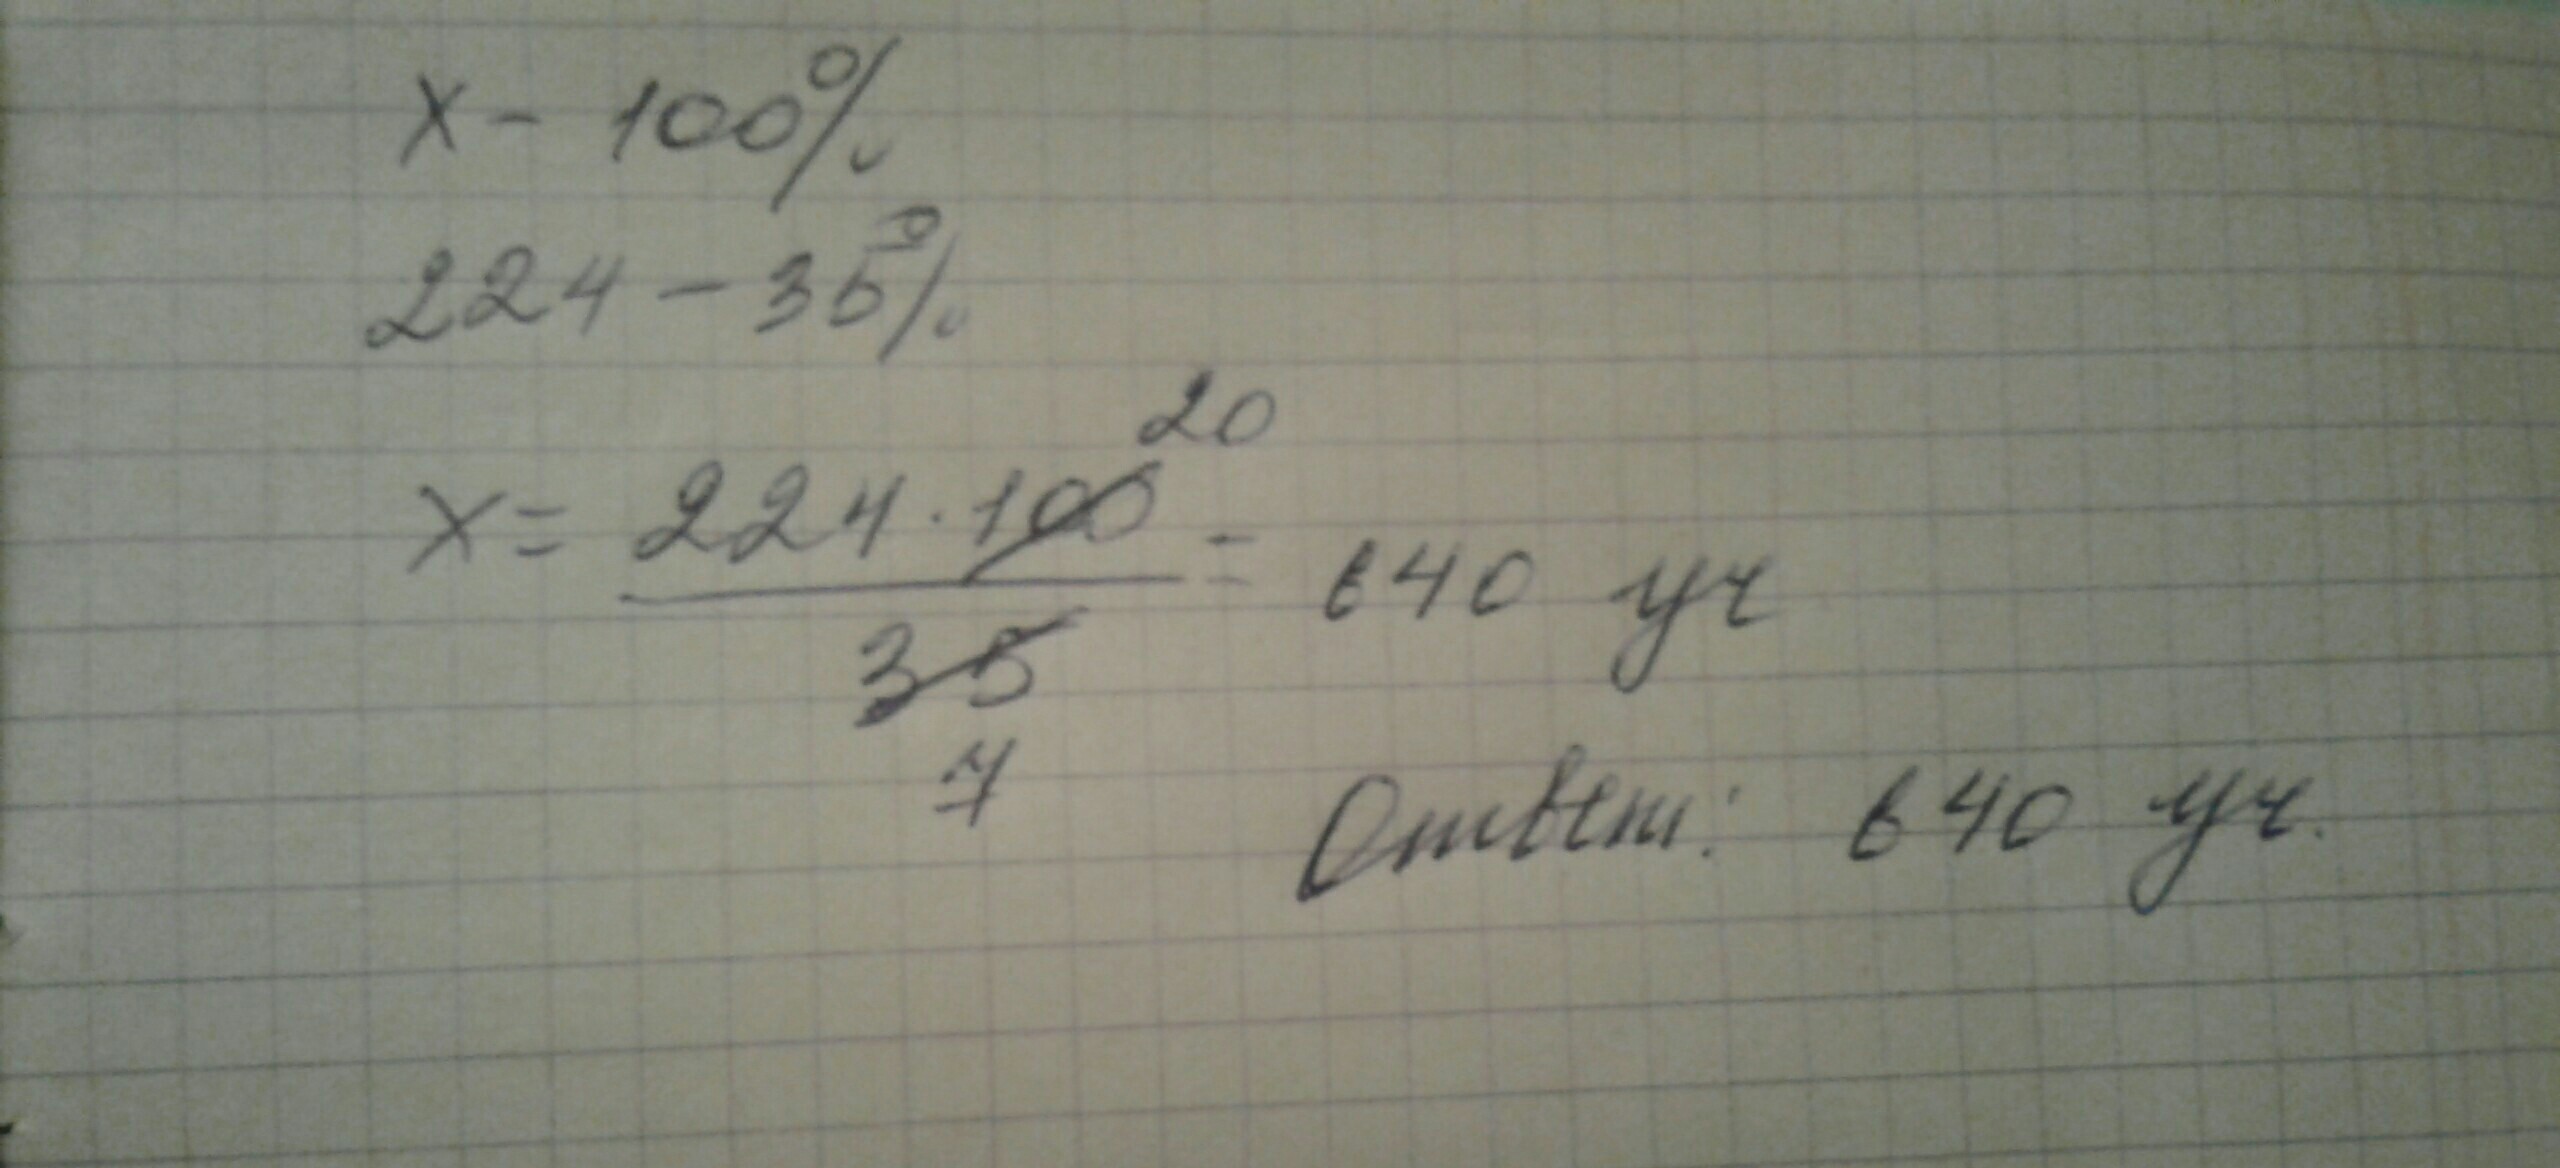 x - 100%
224 - 35%
20
x = 224 · 100 = 640 уч
35
7
Ответ: 640 уч.